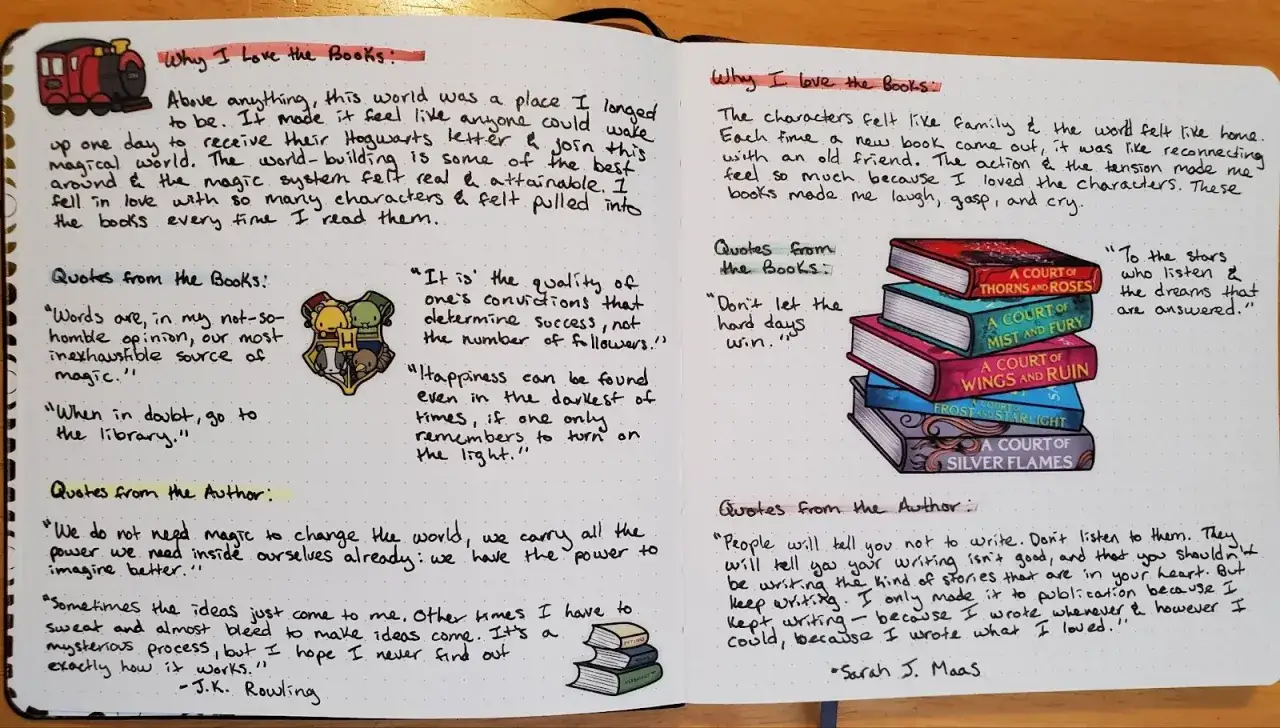 Why I Love the Books:
Above anything, this world was a place I longed
to be. It made it feel like anyone could wake
up one day to receive their Hogwarts letter & join this
magical world. The world-building is some of the best
around & the magic system felt real & attainable. I
fell in love with so many characters & felt pulled into
the books every time I read them.
Quotes from the Books:
"Words are, in my not-so-
homble opinion, our most
inexhaustible source of
magic."
"When in doubt, go to
the library."
H
"It is the quality of
one's convictions that
determine success, not
the number of followers."
"Happiness can be found
even in the darkest of
times, if one only
remembers to turn on
the light."
Quotes from the Author:
"We do not need magic to change the world, we carry all the
power we need inside ourselves already: we have the power to
imagine better."
"Sometimes the ideas just come to me. Other times I have to
sweat and almost bleed to make ideas come. It's a
mysterious process, but I hope I never find out
exactly how it works."
-J.K. Rowling
Why I love the Books:
The characters felt like family & the world felt like home.
Each time a new book came out, it was like reconnecting
with an old friend. The action & the tension made me
feel so much because I loved the characters. These
books made me laugh, gasp, and cry.
Quotes from
the Books:
"Don't let the
hard days
win."
A COURT OF
THORNS AND ROSES
A COURT OF
MIST AND FURY
A COURT OF
WINGS AND RUIN
A COURT OF
FROST AND STARLIGHT
A COURT OF
SILVER FLAMES
"To the stars
who listen &
the dreams that
are answered."
Quotes from the Author:
"People will tell you not to write. Don't listen to them. They
will tell you your writing isn't good, and that you shouldn't
be writing the kind of stories that are in your heart. But
keep writing. I only made it to publication because I
kept writing – because I wrote whenever & however I
could, because I wrote what I loved."
-Sarah J. Maas